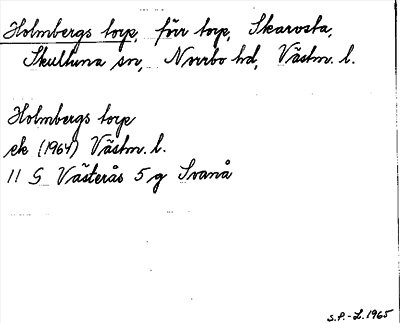 Holmbergs torp, förr torp, Skarosta,
Skultuna sn, Norrbo hd, Västm. l.
Holmbergs torp
ek (1964) Västm. l.
11 G Västerås 5 g Svanå
S.P.-L. 1965